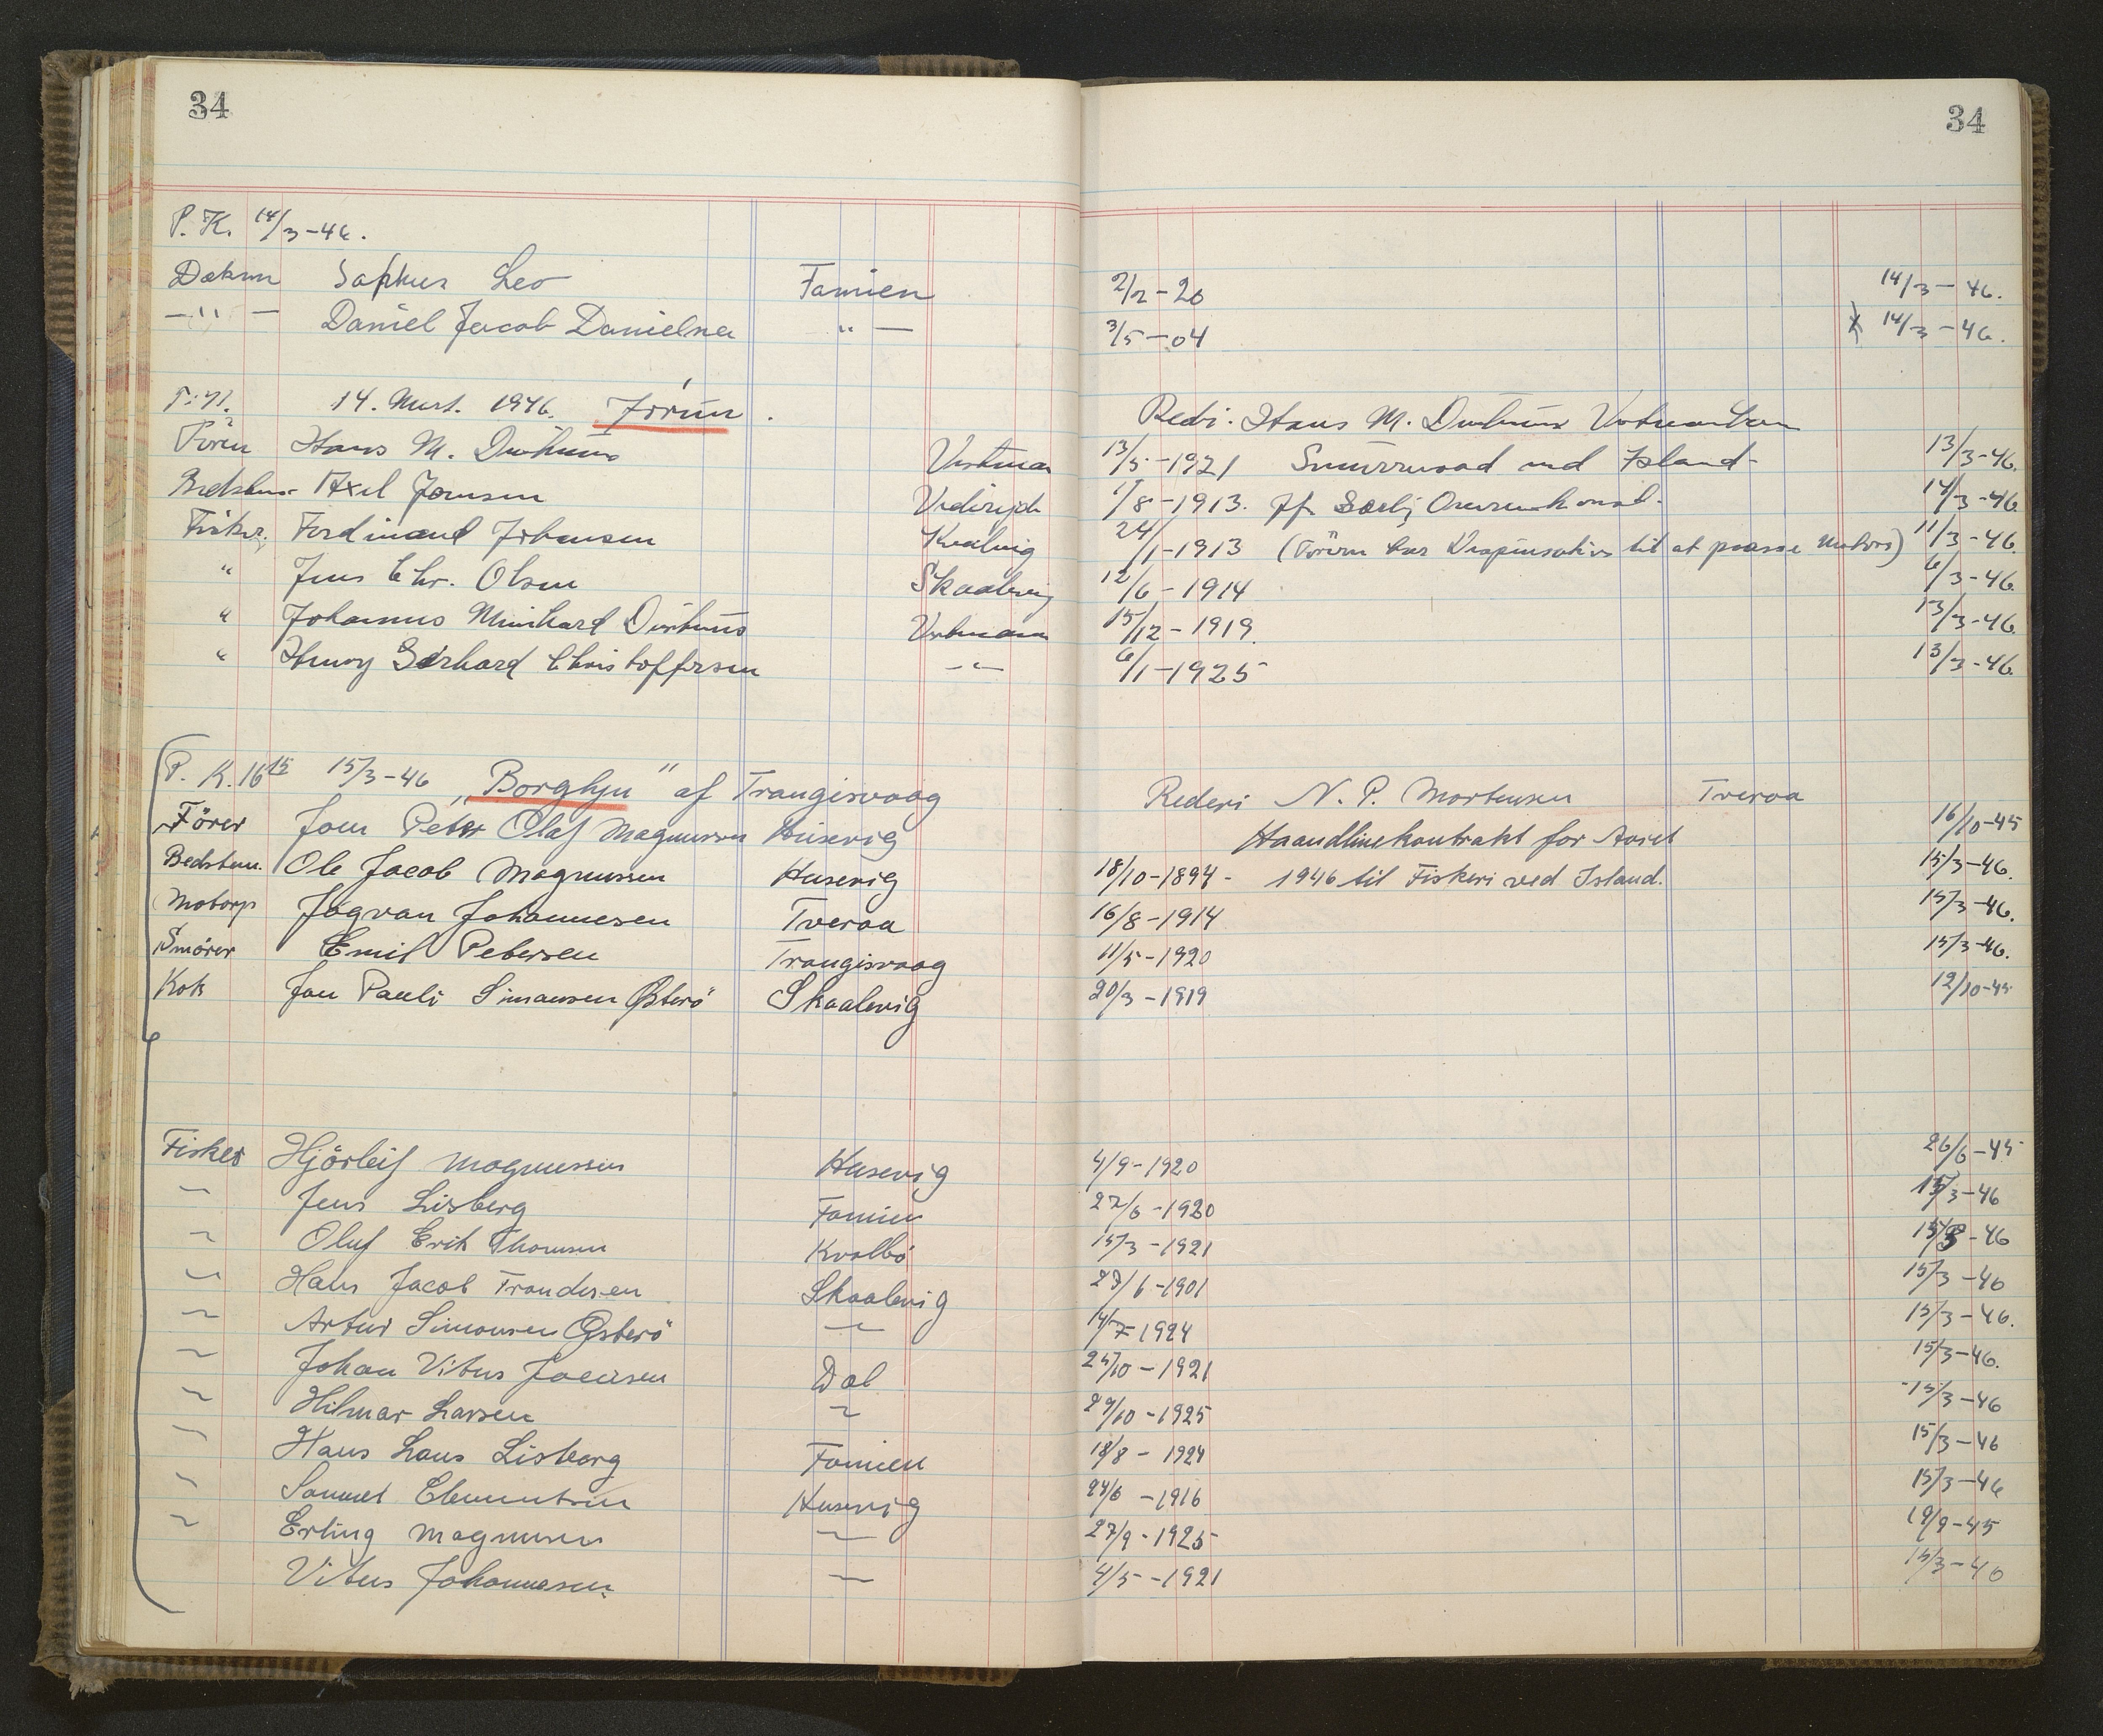 34
34
P. K. 14/3-46.
Dæksm Sophus Leo Famien 2/2-20 14/3-46.
-"- Daniel Jacob Danielsen "- 3/5-04 x 14/3-46.
14. Mart. 1946. Redi. Hans M.
Hans M. Vestman 13/5-1921 Snurrevaad ved Island 13/3-46.
Bedstm. Axel Joensen 1/8-1913. 14/3-46
Fisker. Ferdinand Johansen Kvalvig 24/1-1913 (Føreren har Dispensation til at passe Motors) 11/3-46
" Jens Chr. Olsen Skaalevig 12/6-1914 6/3-46.
" Johannus Meinhard Vestmann 15/12-1919. 13/3-46.
" Henry Gerhard Christoffersen -"- 6/1-1925 13/3-46.
P. K. 16 15 15/3-46 „Borglyn" af Trangisvaag Rederi N. P. Mortensen Tveraa
Förer Joen Peter Olaf Magnussen Husevig Haandlinekontrakt for Aaret 16/10-45
Bedstem. Ole Jacob Magnussen Husevig 18/10-1894- 1946 til Fiskeri ved Island. 15/3-46.
Motorp Jógvan Johannesen Tveraa 16/8-1914 15/3-46.
Smörer Emil Petersen Trangisvaag 11/5-1920 15/3-46.
Kok Jon Pauli Simonsen Østerö Skaalevig 20/3-1919 12/10-45
Fisker Hjörleif Magnussen Husevig 4/9-1920 26/6-45
" Jens Lisberg Famien 27/6-1920 15/3-46
" Oluf Erik Thomsen Kvalbö 15/3-1921 15/3-46
" Hans Jacob Trondesen Skaalevig 27/6-1901 15/3-46
" Artur Simonsen Østerö " 14/7-1924 15/3-46.
" Johan Vitus Joensen Dal 25/10-1921 15/3-46.
" Hilmar Larsen " 29/10-1925 15/3-46
" Hans Laus Lisberg Famien 18/8-1924 15/3-46
" Samuel Clementsen Husevig 24/6-1916 15/3-46
" Erling Magnussen " 27/9-1925 19/9-45
Vitus Johannesen " 4/5-1921 15/3-46